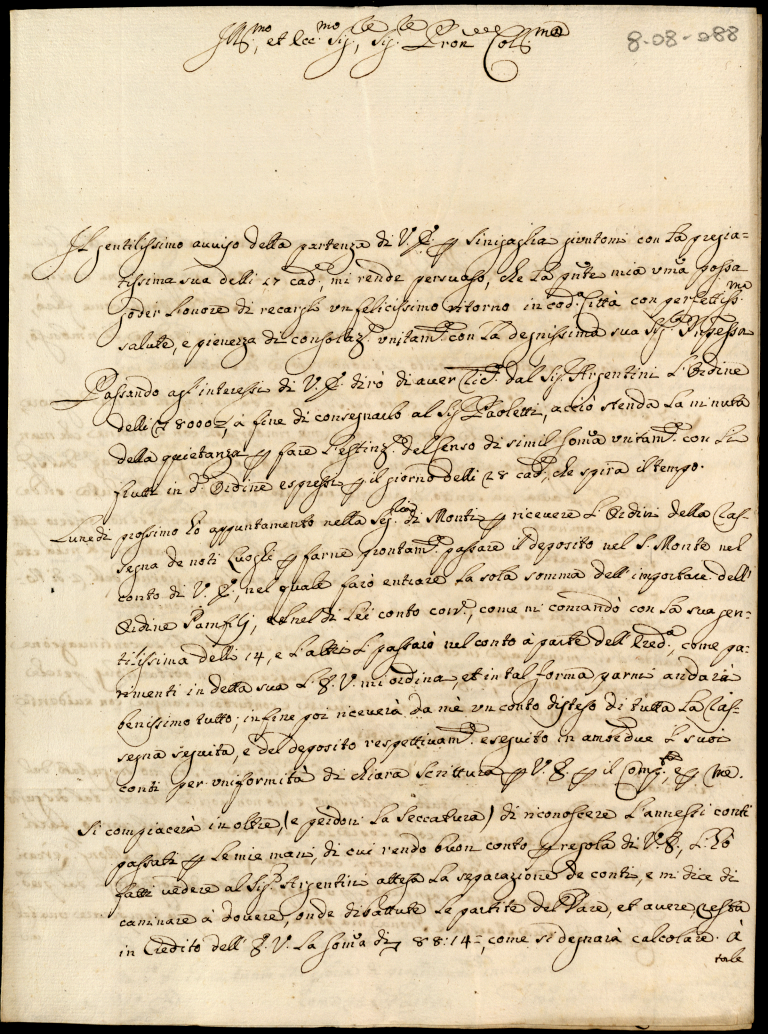 Ill.mo, et Ecc.mo Sig.re, Sig.re Pron Coll.mo
8-08-088
Il gentilissimo auuiso della partenza di V. E. p Sinigaglia giuntomi con la pregia=
tissima sua delli 17 cad.e, mi rende persuaso, che la pnte mia umã possa
goder l'onore di recargli un felicissimo ritorno in cod.a Città con perfettiss.ma
salute, e pienezza di consolaz.e unitam.te con la degnissima sua Sig.ra Pnpessa
Passando agl'interessi di V. E. dirò di auer lic.to dal Sig.r Argentini l'Ordine
delli 8000, à fine di consegnarlo al Sig.r Paoletti, acciò stenda la minuta
della quietanza p fare l'estinz.e del Censo di simil somã unitam.te con li
frutti in d.o Ordine espressi p il giorno delli 28 cad.e, che spira il tempo.
Lunedi prossimo hò appuntamento nella Seg.ria di Monti p riceuere l'Ordini della Cas=
segna de noti Luoghi p farne prontam.te passare il deposito nel S. Monte nel
conto di V. E., nel quale farò entrare la sola somma dell'importare dell'
Ordine Pamfilj, et nel di Lei conto corr.e, come mi comandò con la sua gen=
tilissima delli 14, e l'altri l. passarò nel conto à parte dell'Ered.a, come pa=
rimenti in detta sua l'E. V. mi ordina, et in tal forma parmi andarà
benissimo tutto; infine poi riceuerà da mè un conto disteso di tutta la Cas=
segna seguita, e del deposito respettiuam.te eseguito in amendue l. suoi
conti per uniformità di chiara scrittura p V. E. p il Comp.ta, e p me.
Si compiacerà in oltre, (e perdoni la seccatura) di riconoscere l'annessi conti
passati p le mie mani, di cui rendo buon conto p regola di V. E., l'hò
fatti uedere al Sig.r Argentini attesa la separazione de conti, e mi dice di
caminare à douere, onde dibattute le partite del Dare, et auere, resta
in Credito dell'E. V. la somã di 88:14=, come si degnarà calcolare. À
tale